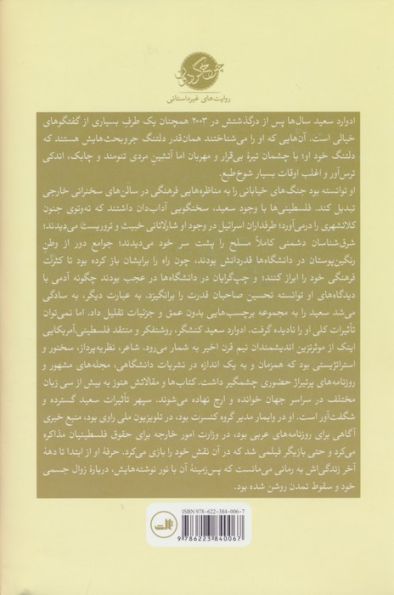 روایت‌های غیرداستانی
ادوارد سعید سال‌ها پس از درگذشتش در ۲۰۰۳ همچنان یک طرفِ بسیاری از گفتگوهای
خیالی است. آن‌هایی که او را می‌شناختند همان‌قدر دلتنگ جروبحث‌هایش هستند که
دلتنگ خود او؛ با چشمان تیرهٔ بی‌قرار و مهربان اما آتشین مردی تنومند و چابک، اندکی
ترس‌آور و اغلب اوقات بسیار شوخ‌طبع.
او توانسته بود جنگ‌های خیابانی را به مناظره‌هایی فرهنگی در سالن‌های سخنرانی خارجی
تبدیل کند. فلسطینی‌ها با وجود سعید، سخنگویی آداب‌دان داشتند که ته‌وتوی جنون
کلانشهری را درمی‌آورد؛ طرفداران اسرائیل در وجود او شارلاتانی خبیث و تروریست می‌دیدند؛
شرق‌شناسان دشمنی کاملاً مسلح را پشت سر خود می‌دیدند؛ جوامع دور از وطن
رنگین‌پوستان در دانشگاه‌ها قدردانش بودند، چون راه را برایشان باز کرده بود تا کثرت
فرهنگی خود را ابراز کنند؛ و چپ‌گرایان در دانشگاه‌ها در عجب بودند چگونه آدمی با
دیدگاه‌های او توانسته تحسین صاحبان قدرت را برانگیزد. به عبارت دیگر، به سادگی
می‌شد سعید را به مجموعه برچسب‌هایی بدون عمق و جزئیات تقلیل داد، اما نمی‌توان
تأثیرات کلی او را نادیده گرفت. ادوارد سعید کنشگر، روشنفکر و منتقد فلسطینی‌آمریکایی
اینک از موثرترین اندیشمندان نیم قرن اخیر به شمار می‌رود. شاعر، نظریه‌پرداز، سخنور و
استراتژیستی بود که همزمان و به یک اندازه در نشریات دانشگاهی، مجله‌های مشهور و
روزنامه‌های پرتیراژ حضوری چشمگیر داشت. کتاب‌ها و مقالاتش هنوز به بیش از سی زبان
مختلف در سراسر جهان خوانده و ارج نهاده می‌شوند. سپهر تأثیرات سعید گسترده و
شگفت‌آور است. او در وایمار مدیر گروه کنسرت بود، در تلویزیون ملی راوی بود، منبع خبری
آگاهی برای روزنامه‌های عربی بود، در وزارت امور خارجه برای حقوق فلسطینیان مذاکره
می‌کرد و حتی بازیگر فیلمی شد که در آن نقش خود را بازی می‌کرد. حرفهٔ او از ابتدا تا دههٔ
آخر زندگی‌اش به رمانی می‌مانست که پس‌زمینهٔ آن با نور نوشته‌هایش، دربارهٔ زوال جسمی
خود و سقوط تمدن روشن شده بود.
ISBN 978-622-384-006-7
9 786223 840067